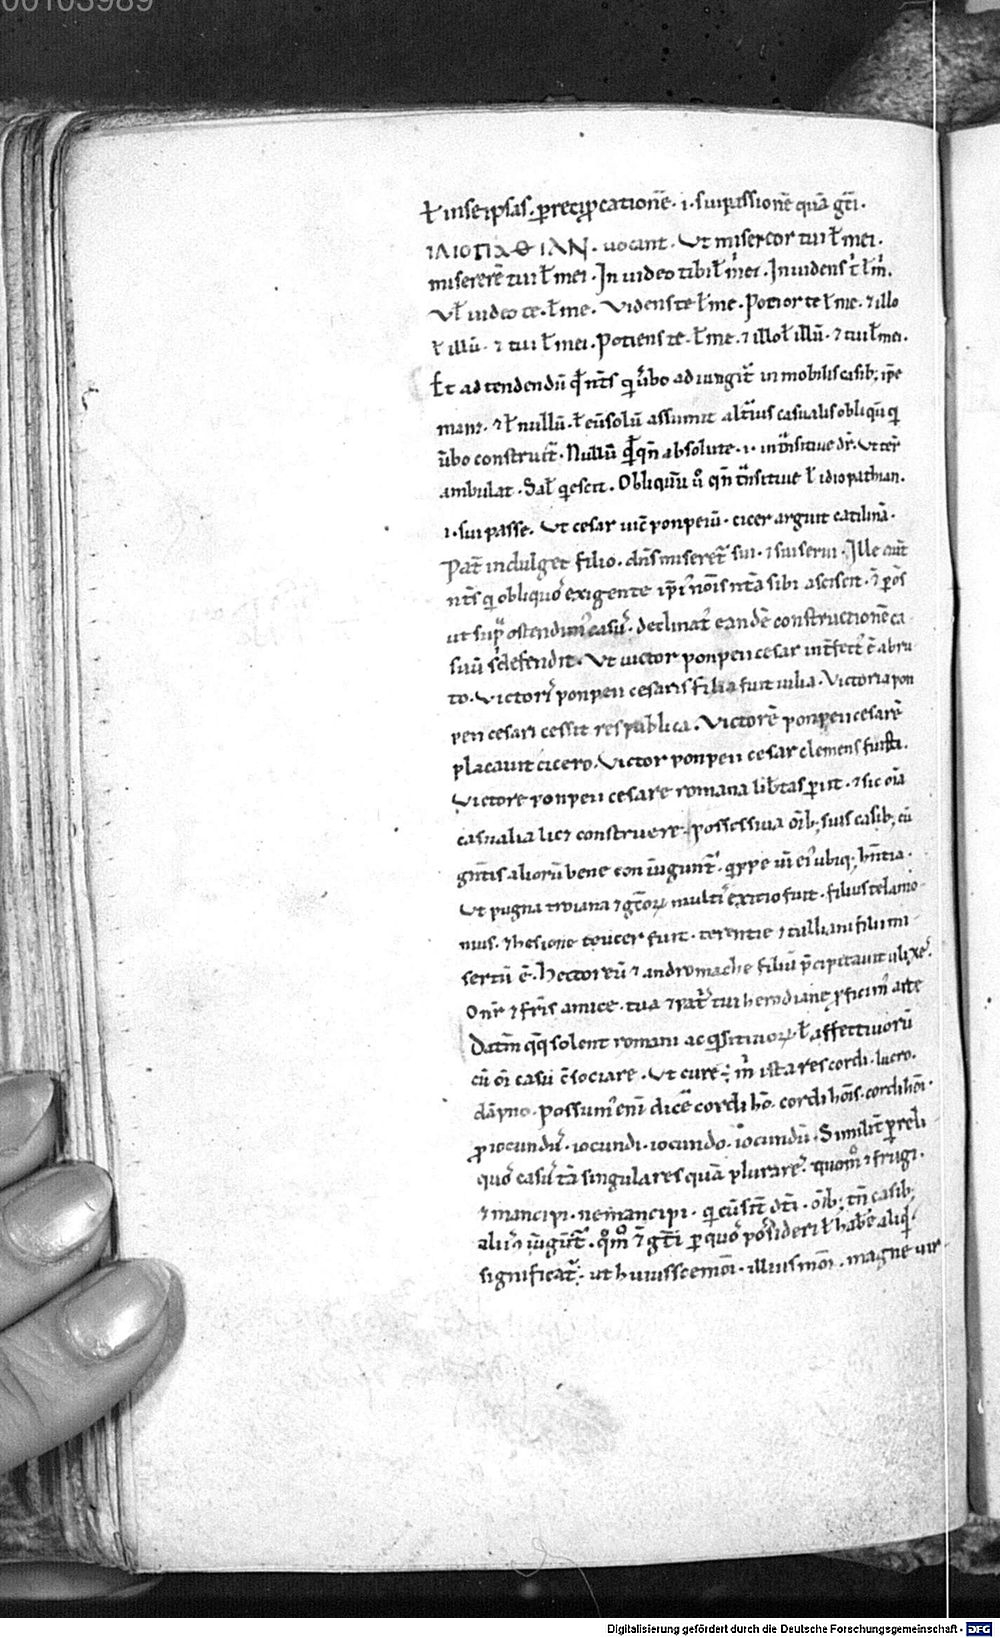 00103989
ł inseipsas. p̄recip̱catione᷒. i. suipassione᷒ quā grēi.
ιΔΙΟΠΑΘΙΑΝ. uocant. Ut misereor tui ł mei.
miserere᷒ tui ł mei. In uideo tibi ł mei. Inuidens t̄ ł m̄.
Vł uideo te. ł me. Videns te ł me. Potior te ł me. ⁊ illo
ł illū. ⁊ tui ł mei. Potiens te. ł me. ⁊ illo ł illū. ⁊ tui ł mei.
Et adtendendū qd̄ nr̄s q ūbo adiungit᷒ in mobilis casib; ip̄e
man&. ⁊ ł nullū. ł eū solū assumit alt᷒ius casualis obliqū q
ūbo construit᷒. Nullū qd̄ qn̄ absolute. i. int᷒nsitiue dr̄. Ut ter
ambulat. Sał q̄escit. Obliquū u᷒ qn̄ t᷒nsitiue ł idiopathian.
i. sui passe. Ut cesar uic̄ ponpeiū. cicer arguit catilinā.
Pat᷒ indulget filio. dn̄s miseret᷒ sui. ⁊ sui serui. Ille aut̄
nr̄s q obliquos exigente ip̄i᷒ nois nt̄a sibi asciscit. ⁊ p̄os
ut sup̄ ostendim᷒ casus. declinat᷒ eandē constructionē ca
suū s᷒ defendit. Ut uictor ponpeii cesar int᷒fect᷒ ē abru
to. Victoris ponpeii cesaris filia fuit iulia. Victori a pon
peii cesari cessit respublica. Victorē ponpeii cesarē
placauit cicero. Victor ponpeii cesar clemens fuisti.
Victore ponpeii cesare romana lib᷒tas p̱iit. ⁊ sic oīa
casualia lic& construere. possessiua oīb; suis casib; cū
gnt̄is aliorū bene coniungunt᷒. q̱ppe uī ei᷒ ubiq; hn̄tia.
Ut pugna troiana ⁊ grēoꝝ multis exitio fuit. filius telamo
nius. ⁊ hesione teucer fuit. terentie ⁊ tulliani filii mi
sertū ē. hectoreū ⁊ andromache filiū p̄cipitauit ulixes.
O nr̄ ⁊ fr̄is amice. tua ⁊ pat᷒ tui herodiane p̱ficim᷒ arte
Datiū qq̄ solent romani acq̱sitiuoꝝ ł affectiuorū
cū oī casu c̄sociare. Ut cure ÷ m̄ ista res cordi. lucro.
dāpno. Possum᷒ enī dic̄e cordi hō. cordi hōis. cordi hōi.
p̱ iocundus. iocundi. iocundo. iocundū. Similit̄ p̱ reli
quos casus tā singulares quā plurares. quom̄ ⁊ frugi.
⁊ mancipi. nemancipi. q cū sit᷒ dt̄i. oīb; tn̄ casib;
aliis iūgunt᷒. qm̄ ⁊ gt̄i p̱ quos possideri ł habe᷒ aliq̱
significat᷒. ut huiuscemoī. illiusmoī. magne uir
Digitalisierung gefördert durch die Deutsche Forschungsgemeinschaft - DFG